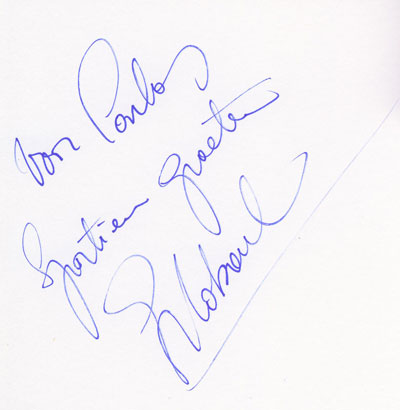 Voor Carlos
Sportieve groeten